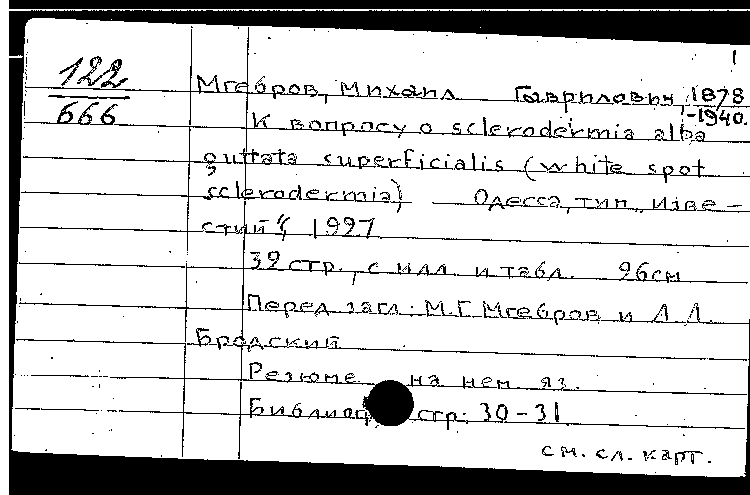 1
122
666
Мгебров, Михаил Гаврилович, 1878
-1940.
К вопросу о sclerodermia alba
guttata superficialis (white spot
sclerodermia) Одесса, тип. „Изве-
стий“, 1927
32 стр., с илл. и табл. 26 см
Перед загл.: М.Г. Мгебров и Л.Л.
Бродский
Резюме на нем. яз.
Библиогр. стр: 30-31
см. сл. карт.